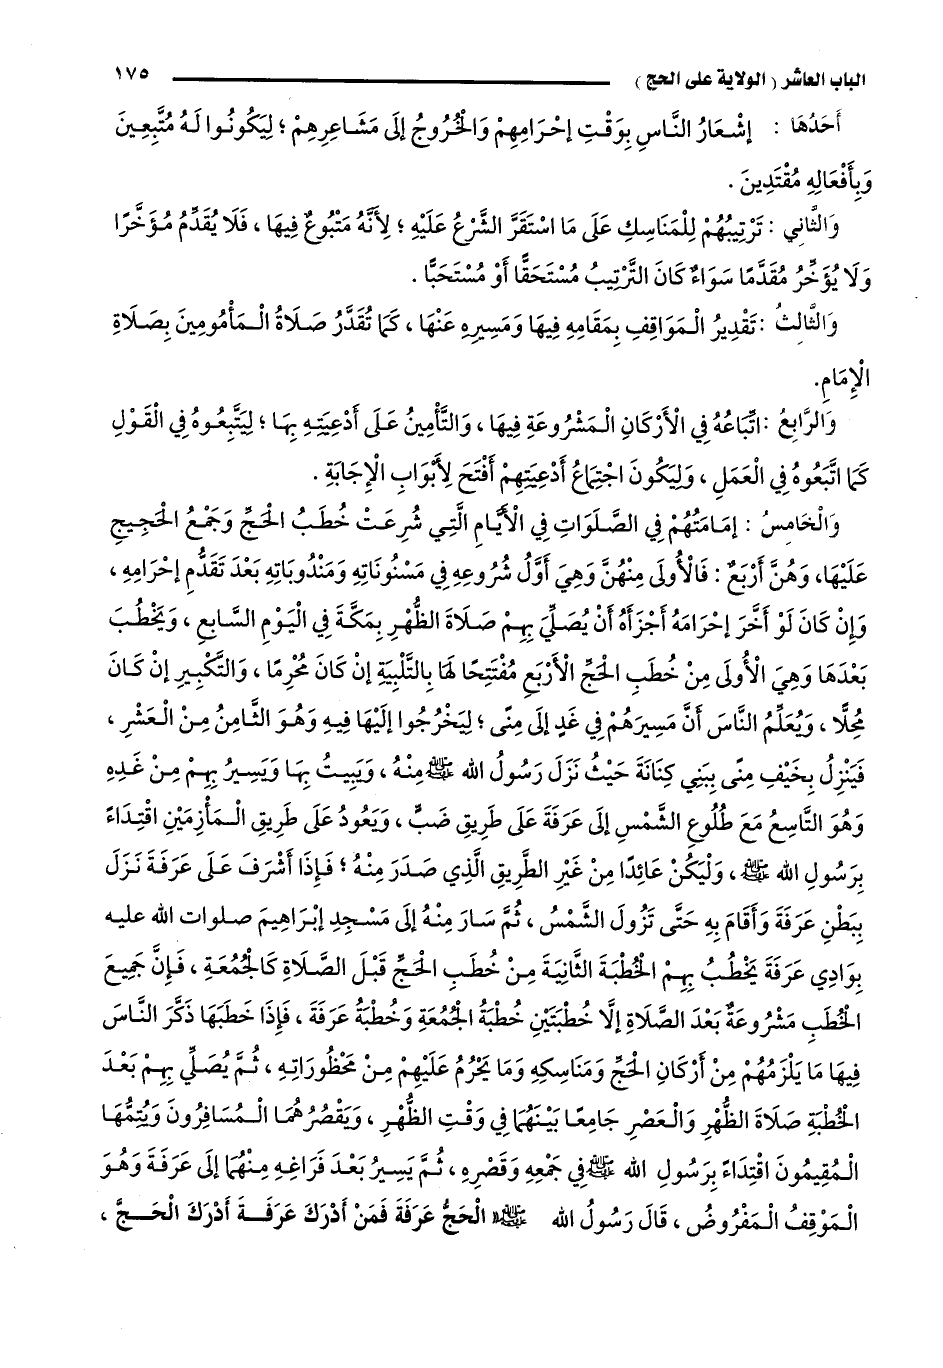 الباب العاشر ( الولاية على الحج ) ١٧٥
أَحَدُهَا : إشْعَارُ النَّاسِ بِوَقْتِ إحْرَامِهِمْ وَالْخُرُوجُ إلَى مَشَاعِرِهِمْ ؛ لِيَكُونُوا لَهُ مُتَّبِعِينَ
وَبِأَفْعَالِهِ مُقْتَدِينَ .
وَالثَّانِي : تَرْتِيبُهُمْ لِلْمَنَاسِكِ عَلَى مَا اسْتَقَرَّ الشَّرْعُ عَلَيْهِ ؛ لِأَنَّهُ مَتْبُوعٌ فِيهَا ، فَلَا يُقَدِّمُ مُؤَخَّرًا
وَلَا يُؤَخِّرُ مُقَدَّمًا سَوَاءٌ كَانَ التَّرْتِيبُ مُسْتَحَقًّا أَوْ مُسْتَحَبًّا .
وَالثَّالِثُ : تَقْدِيرُ الْمَوَاقِفِ بِمَقَامِهِ فِيهَا وَمَسِيرِهِ عَنْهَا ، كَمَا تُقَدَّرُ صَلَاةُ الْمَأْمُومِينَ بِصَلَاةِ
الْإِمَامِ.
وَالرَّابِعُ : اتِّبَاعُهُ فِي الْأَرْكَانِ الْمَشْرُوعَةِ فِيهَا ، وَالتَّأْمِينُ عَلَى أَدْعِيَتِهِ بِهَا ؛ لِيَتَّبِعُوهُ فِي الْقَوْلِ
كَمَا اتَّبَعُوهُ فِي الْعَمَلِ ، وَلِيَكُونَ اجْتِمَاعُ أَدْعِيَتِهِمْ أَفْتَحَ لِأَبْوَابِ الْإِجَابَةِ .
وَالْخَامِسُ : إمَامَتُهُمْ فِي الصَّلَوَاتِ فِي الْأَيَّامِ الَّتِي شُرِعَتْ خُطَبُ الْحَجِّ وَجَمْعُ الْحَجِيجِ
عَلَيْهَا، وَهُنَّ أَرْبَعٌ : فَالْأُولَى مِنْهُنَّ وَهِيَ أَوَّلُ شُرُوعِهِ فِي مَسْنُونَاتِهِ وَمَنْدُوبَاتِهِ بَعْدَ تَقَدُّمِ إحْرَامِهِ ،
وَإِنْ كَانَ لَوْ أَخَّرَ إحْرَامَهُ أَجْزَأَهُ أَنْ يُصَلِّيَ بِهِمْ صَلَاةَ الظُّهْرِ بِمَكَّةَ فِي الْيَوْمِ السَّابِعِ ، وَيَخْطُبَ
بَعْدَهَا وَهِيَ الْأُولَى مِنْ خُطَبِ الْحَجِّ الْأَرْبَعِ مُفْتَتِحًا لَهَا بِالتَّلْبِيَةِ إنْ كَانَ مُحْرِمًا ، وَالتَّكْبِيرِ إنْ كَانَ
مُحِلًّا ، وَيُعَلِّمُ النَّاسَ أَنَّ مَسِيرَهُمْ فِي غَدٍ إلَى مِنًى ؛ لِيَخْرُجُوا إلَيْهَا فِيهِ وَهُوَ الثَّامِنُ مِنْ الْعَشْرِ ،
فَيَنْزِلُ بِخَيْفِ مِنًى بِبَنِي كِنَانَةَ حَيْثُ نَزَلَ رَسُولُ الله ﷺ مِنْهُ ، وَيَبِيتُ بِهَا وَيَسِيرُ بِهِمْ مِنْ غَدِهِ
وَهُوَ التَّاسِعُ مَعَ طُلُوعِ الشَّمْسِ إلَى عَرَفَةَ عَلَى طَرِيقِ ضَبٍّ ، وَيَعُودُ عَلَى طَرِيقِ الْمَأْزِمَيْنِ اقْتِدَاءً
بِرَسُولِ الله ﷺ ، وَلْيَكُنْ عَائِدًا مِنْ غَيْرِ الطَّرِيقِ الَّذِي صَدَرَ مِنْهُ ؛ فَإِذَا أَشْرَفَ عَلَى عَرَفَةَ نَزَلَ
بِبَطْنِ عَرَفَةَ وَأَقَامَ بِهِ حَتَّى تَزُولَ الشَّمْسُ ، ثُمَّ سَارَ مِنْهُ إلَى مَسْجِدِ إبْرَاهِيمَ صلوات الله عليه
بِوَادِي عَرَفَةَ يَخْطُبُ بِهِمْ الْخُطْبَةَ الثَّانِيَةَ مِنْ خُطَبِ الْحَجِّ قَبْلَ الصَّلَاةِ كَالْجُمُعَةِ ، فَإِنَّ جَمِيعَ
الْخُطَبِ مَشْرُوعَةٌ بَعْدَ الصَّلَاةِ إلَّا خُطْبَتَيْنِ خُطْبَةُ الْجُمُعَةِ وَخُطْبَةُ عَرَفَةَ ، فَإِذَا خَطَبَهَا ذَكَّرَ النَّاسَ
فِيهَا مَا يَلْزَمُهُمْ مِنْ أَرْكَانِ الْحَجِّ وَمَنَاسِكِهِ وَمَا يَحْرُمُ عَلَيْهِمْ مِنْ مَحْظُورَاتِهِ ، ثُمَّ يُصَلِّي بِهِمْ بَعْدَ
الْخُطْبَةِ صَلَاةَ الظُّهْرِ وَالْعَصْرِ جَامِعًا بَيْنَهُمَا فِي وَقْتِ الظُّهْرِ ، وَيَقْصُرُهُمَا الْمُسَافِرُونَ وَيُتِمُّهَا
الْمُقِيمُونَ اقْتِدَاءً بِرَسُولِ الله ﷺ فِي جَمْعِهِ وَقَصْرِهِ ، ثُمَّ يَسِيرُ بَعْدَ فَرَاغِهِ مِنْهُمَا إلَى عَرَفَةَ وَهُوَ
الْمَوْقِفُ الْمَفْرُوضُ ، قَالَ رَسُولُ الله ﷺ « الْحَجُّ عَرَفَةَ فَمَنْ أَدْرَكَ عَرَفَةَ أَدْرَكَ الْحَجَّ ،